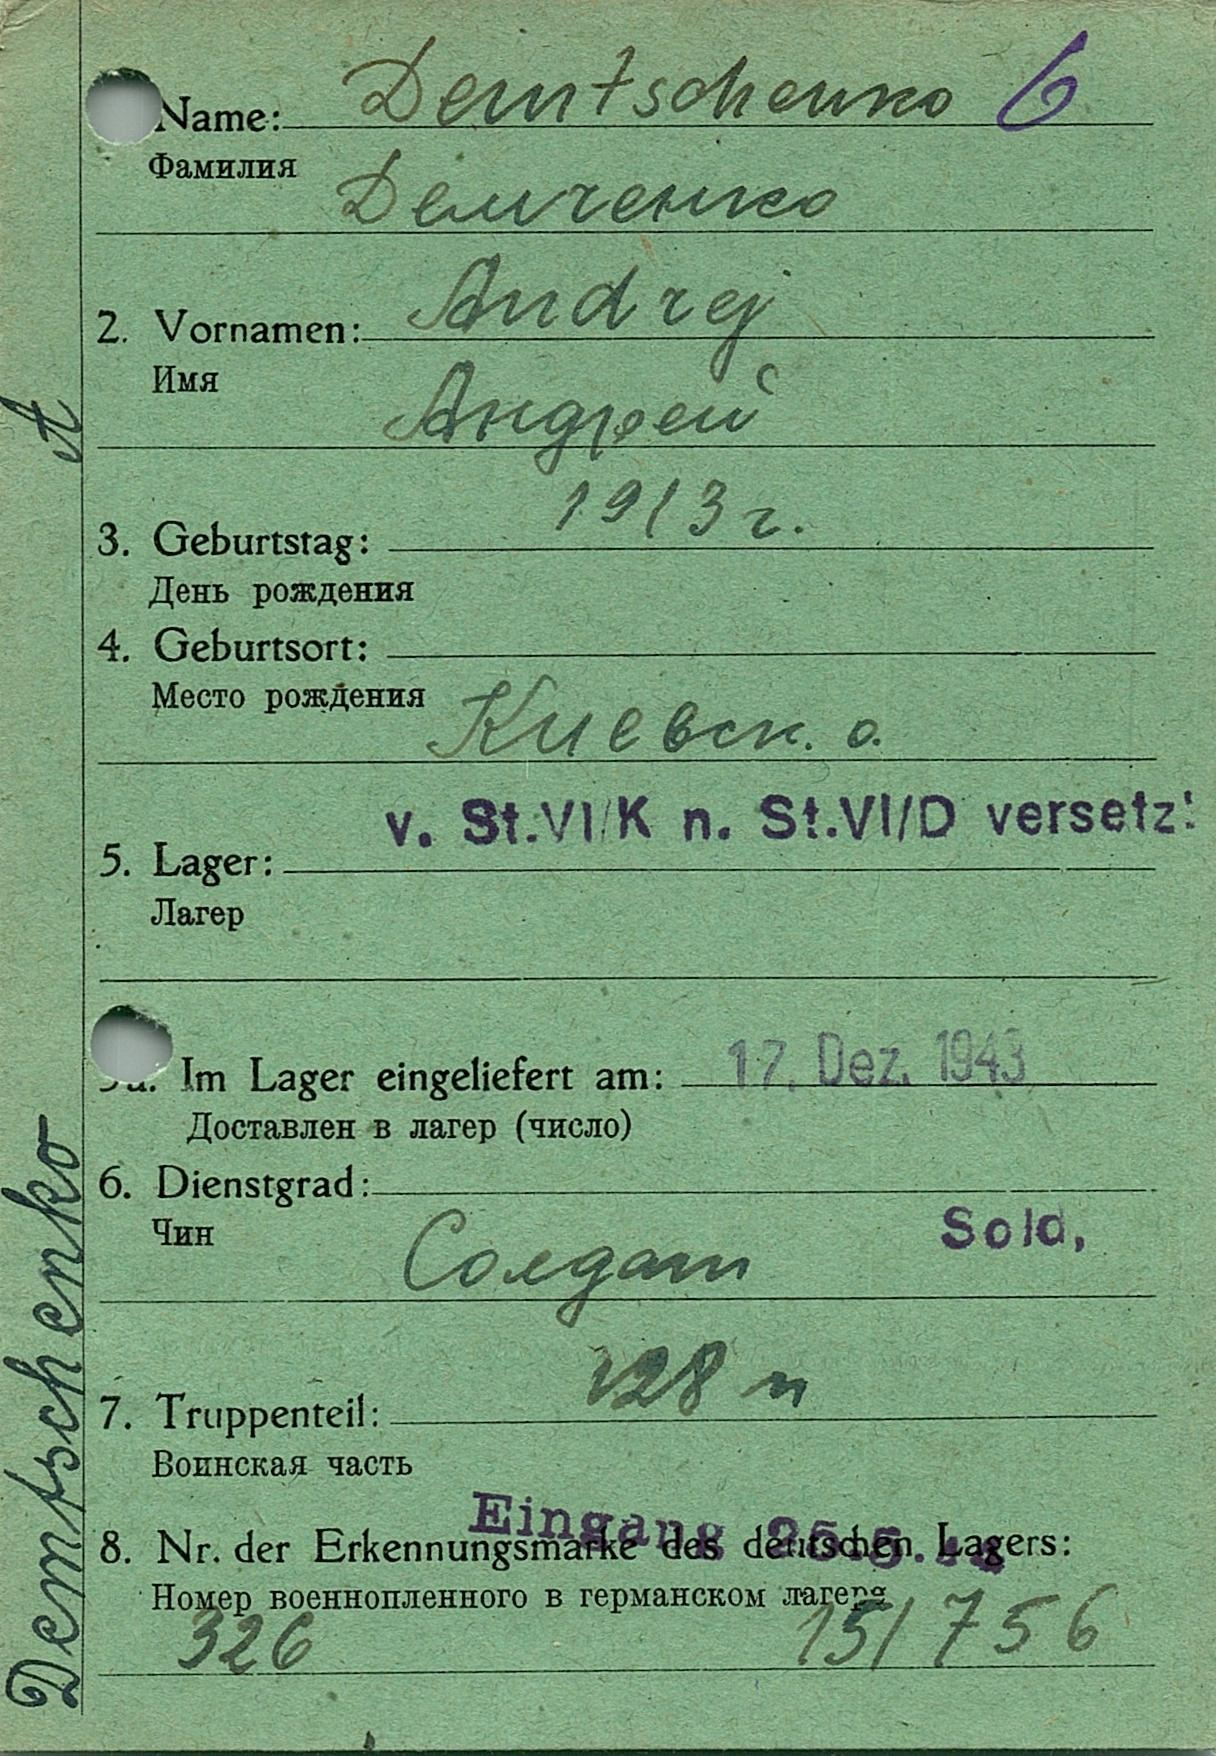 Name: Demtschenko 6
Фамилия
Демченко
2. Vornamen: Andrej
Имя
Андрей
3. Geburtstag: 1913 г.
День рождения
4. Geburtsort:
Место рождения
Киевск. о.
v. St.VI/K n. St.VI/D versetzt
5. Lager:
Лагер
Im Lager eingeliefert am: 17. Dez. 1943
Доставлен в лагер (число)
6. Dienstgrad:
Чин
Sold.
Солдат
128 п
7. Truppenteil:
Воинская часть
Eingang
8. Nr. der Erkennungsmarke des deutschen Lagers:
Номер военнопленного в германском лагере
326 151756
Demtschenko A